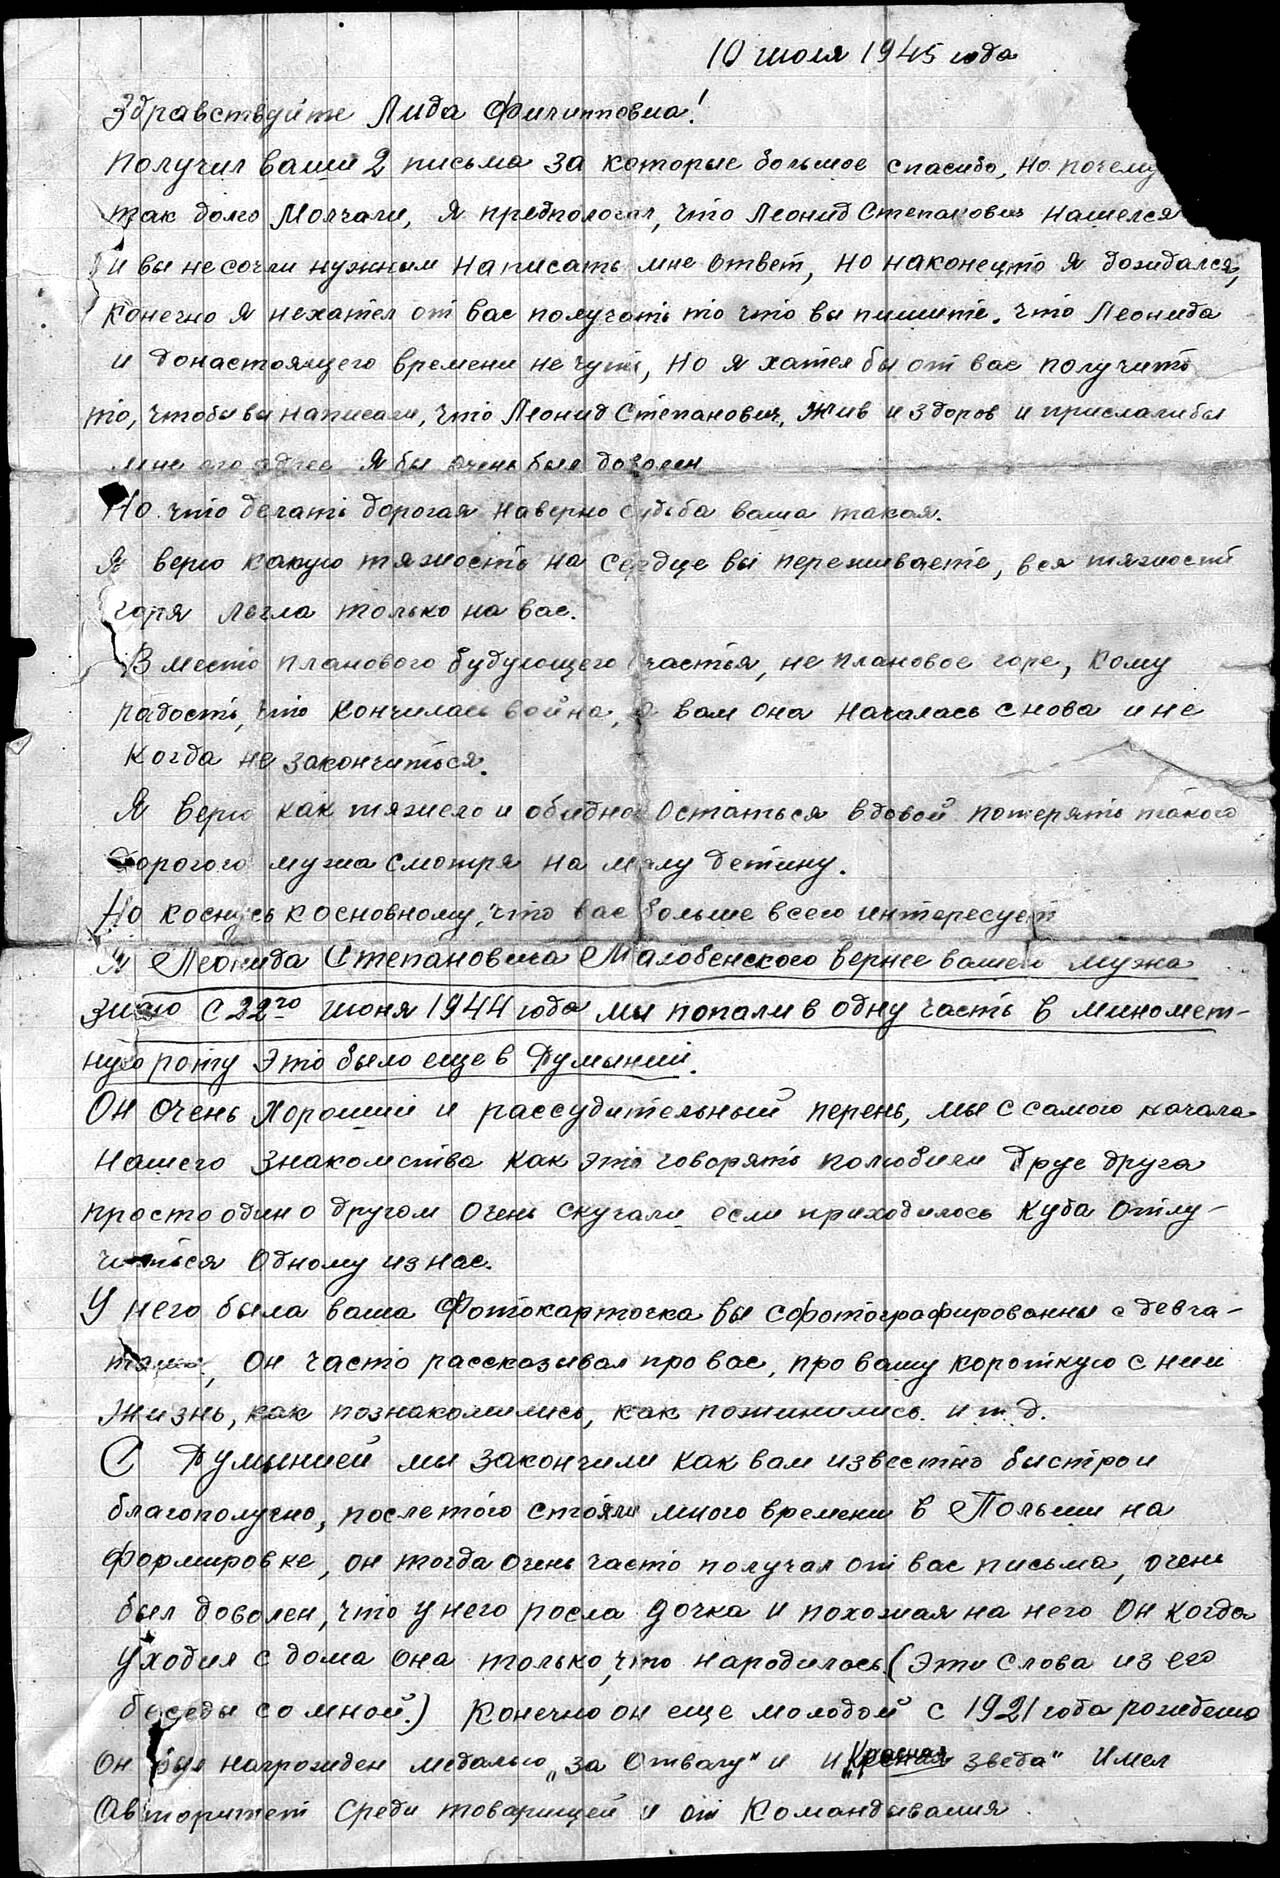 10 июля 1945 года
Здравствуйте Лида Филипповна!
Получил ваши 2 письма за которые большое спасибо, но почему
так долго молчали, я предпологал, что Леонид Степанович нашелся
и вы не сочли нужным написать мне ответ, но наконецто я дождался,
конечно я нехател от вас получать то что вы пишите. что Леонида
и донастоящего времени не чуть, но я хател бы от вас получить
то, чтобы вы написали, что Леонид Степанович, жив и здоров и прислалибы
мне его адрес я бы очень был доволен
Но что делать дорогая наверно судьба ваша такая.
Я верю какую тяжость на сердце вы переживаете, вся тяжость
горя легла только на вас.
Вместо планового будующего счастья, не плановое горе, кому
радость, что кончилась война, а вам она началась снова и не
когда не закончиться.
Я верю как тяжело и обидно остаться вдовой потерять такого
дорогого мужа смотря на малу детину.
Но коснусь к основному, что вас больше всего интересует
Я Леонида Степановича Малобенского вернее вашего мужа
знаю с 22го июня 1944 года мы попали в одну часть в миномет-
ную роту это было еще в Румынии.
Он очень хороший и рассудительный перень, мы с самого начала
нашего знакомства как это говорять полюбили друг друга
просто один о другом очень скучали если приходилось куда отлу-
читься одному из нас.
У него была ваша фотокарточка вы сфотографированны с девча-
тами, он часто рассказывал про вас, про вашу короткую с ним
жизнь, как познакомились, как поженились. и т. д.
С Румынией мы закончили как вам известно быстро и
благополучно, после того стояли много времени в Польши на
формировке, он тогда очень часто получал от вас письма, очень
был доволен, что у него росла дочка и похожая на него он когда
уходил с дома она только что народилась (эти слова из его
беседы со мной.) Конечно он еще молодой с 1921 года рождения
Он был награжден медалью „за Отвагу" и и „Красная зведа" имел
авторитет среди товарищей и от командывания.